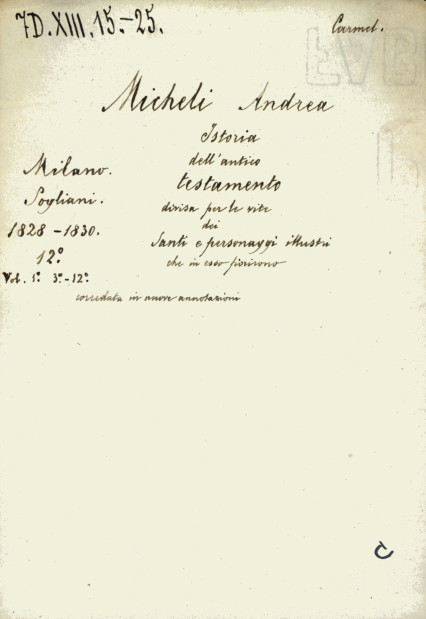 7D.XIII.15.-25.
Carmel.
Micheli Andrea
Istoria
dell'antico
testamento
divisa per le vite
dei
Santi e personaggi illustri
che in esso fiorirono
corredata in nuove annotazioni
Milano.
Sogliani.
1828-1830.
12º.
Vol. 1º. 3º.-12º.